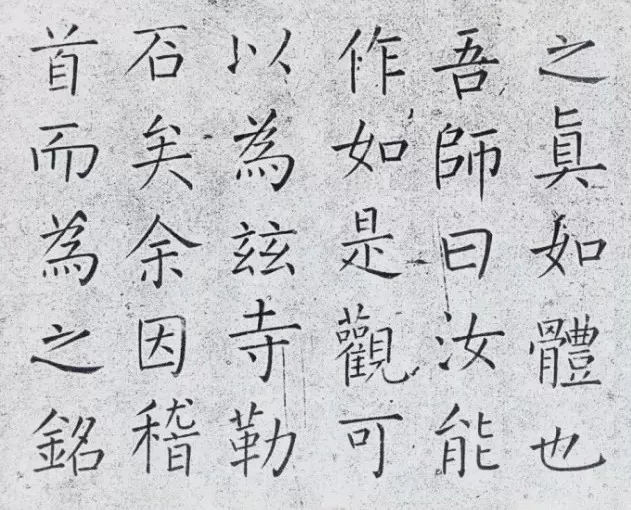 之眞如體也
吾師曰汝能
作如是觀可
以為玆寺勒
石矣余因稽
首而為之銘